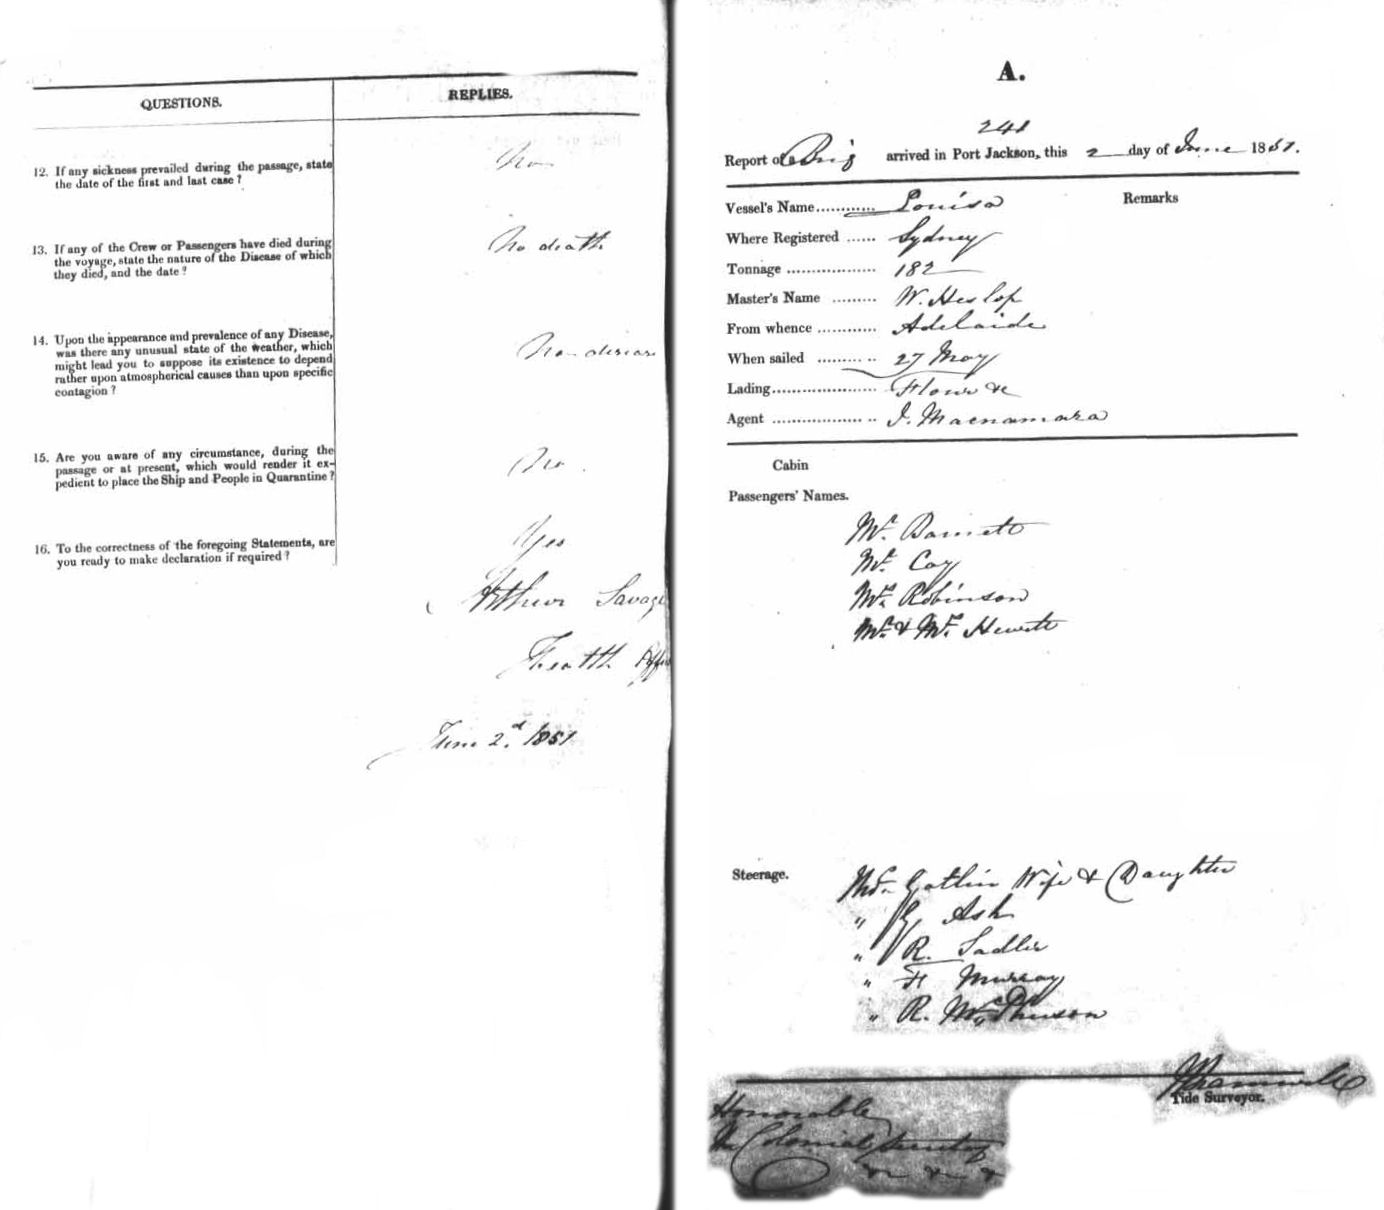 QUESTIONS.
REPLIES.
12. If any sickness prevailed during the passage, state
the date of the first and last case?
No
13. If any of the Crew or Passengers have died during
the voyage, state the nature of the Disease of which
they died, and the date?
No death
14. Upon the appearance and prevalence of any Disease,
was there any unusual state of the weather, which
might lead you to suppose its existence to depend
rather upon atmospherical causes than upon specific
contagion?
No disease
15. Are you aware of any circumstance, during the
passage or at present, which would render it ex-
pedient to place the Ship and People in Quarantine?
No
16. To the correctness of the foregoing Statements, are
you ready to make declaration if required?
Yes
Arthur Savage
Health Offi
June 2d. 1851
A.
241
Report of Brig arrived in Port Jackson, this 2 day of June 1851.
Vessel's Name............ Louisa
Remarks
Where Registered ...... Sydney
Tonnage .................. 182
Master's Name ......... W. Heslop
From whence ............ Adelaide
When sailed ......... .. 27 May
Lading..................... Flour &c
Agent .................. .. J. Macnamara
Cabin
Passengers' Names.
Mr. Barnett
Mr. Coy
Mrs. Robinson
Mr. & Mrs. Hewett
Steerage.
Thos. Gatlin Wife & Daughter
" G. Ash
" R. Sadler
" H Murray
" R. McPherson
Tide Surveyor.
Honorable
The Colonial Secretary
&c &c &c